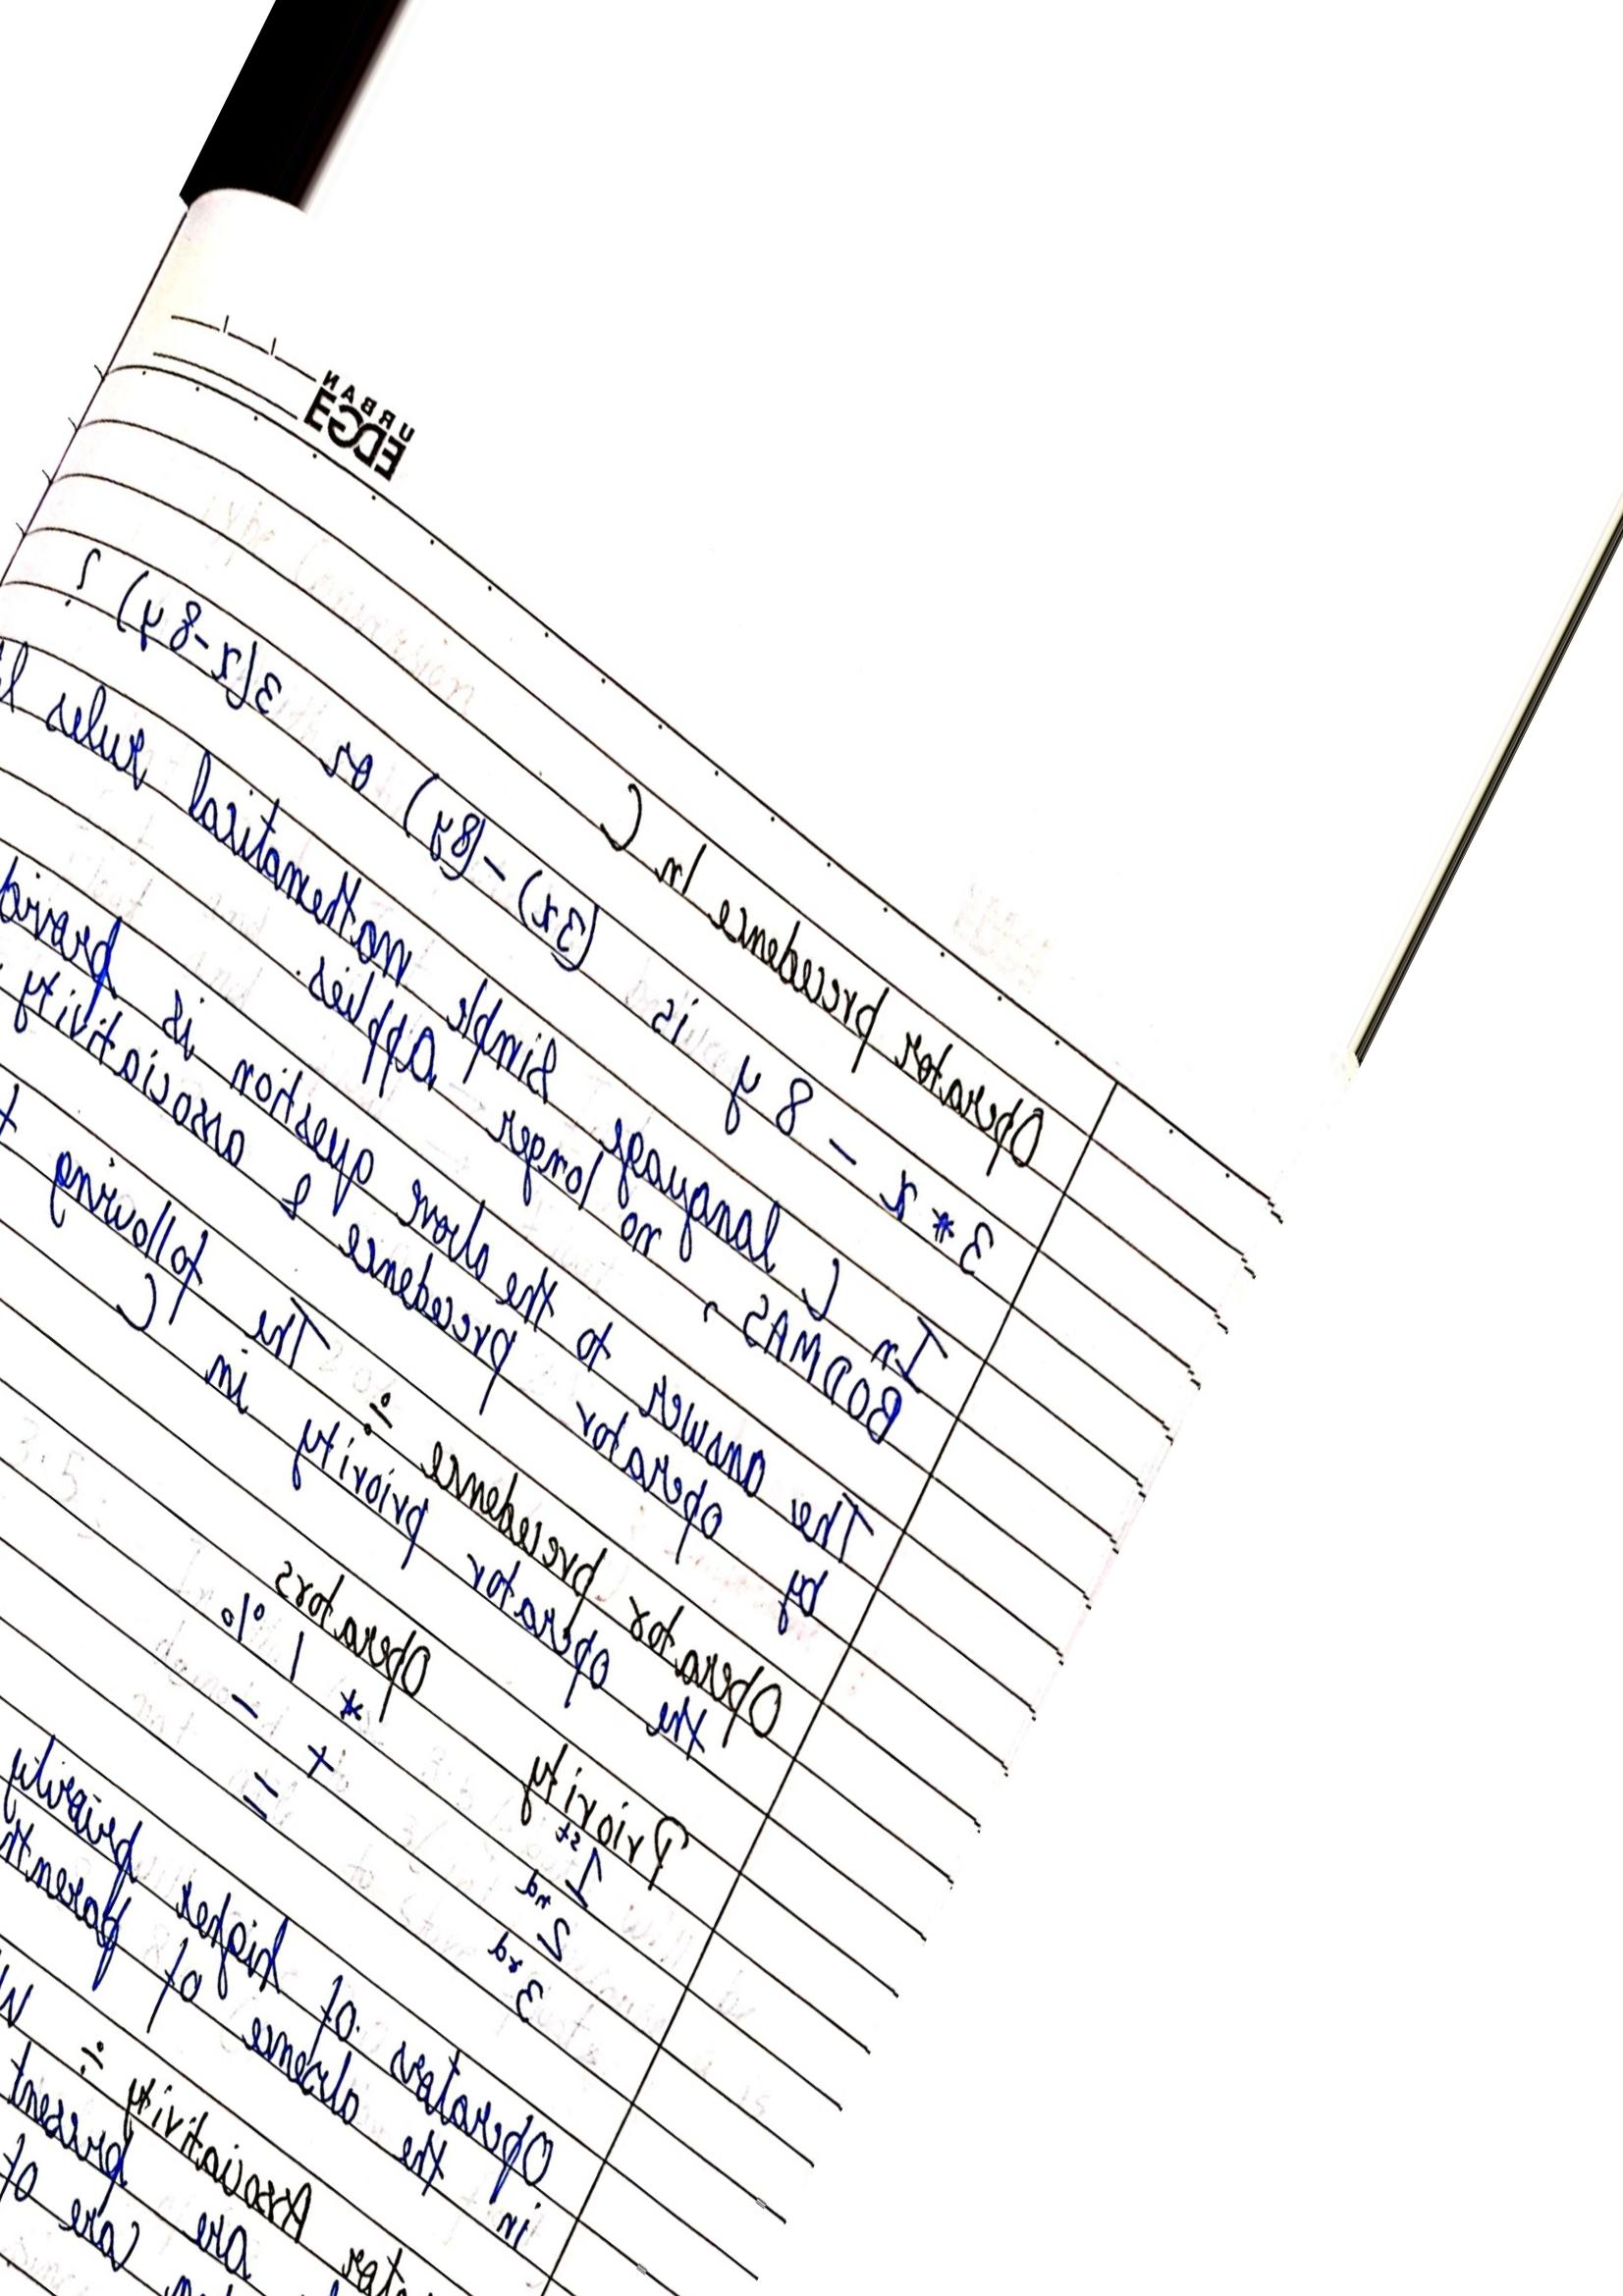 URBAN
EDGE
Operator precedence In C
3*x - 8y is (3x)-(8y) or 3(x-8y) ?
In C language simple mathematical rules
BODMAS, no longer applies.
The answer to the above question is
by operator precedence & associativity
Operator precedence ÷ The following
the operator priority in C
Priority Operators
1st * / %
2nd + -
3rd =
Operators of higher priority
in the absence of
Associativity ÷
are present
care of